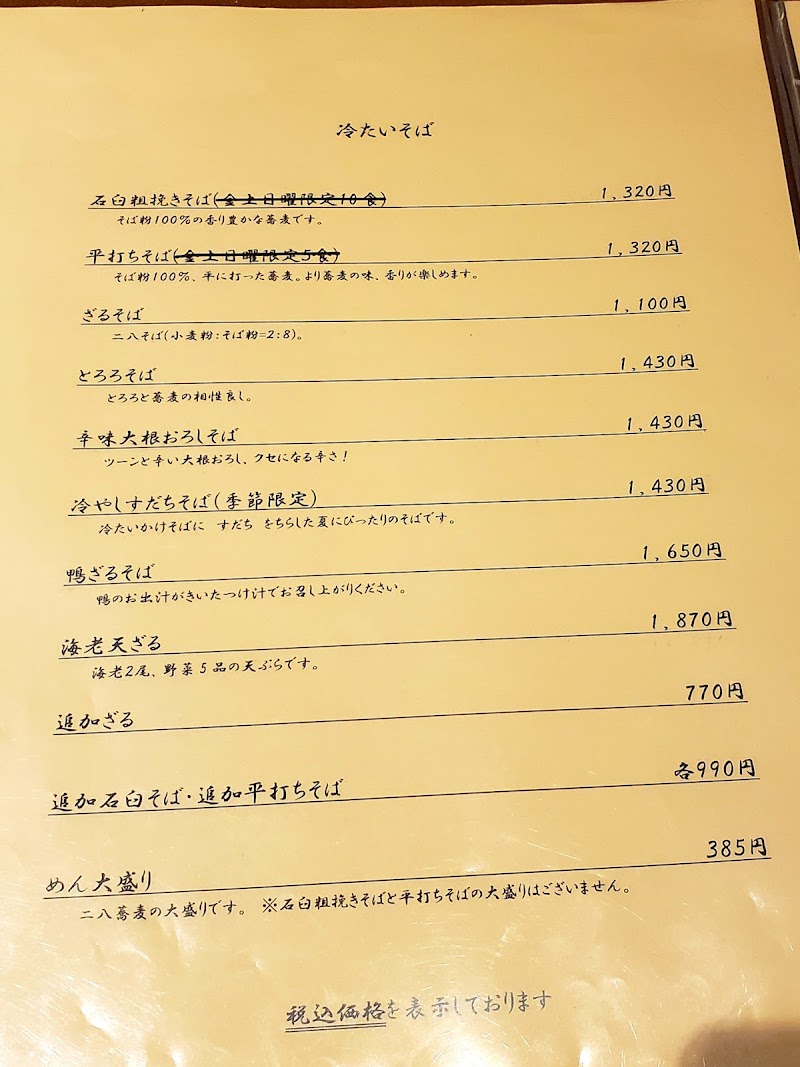 冷たいそば
石臼粗挽きそば(金土日曜限定10食) 1,320円
そば粉100%の香り豊かな蕎麦です。
平打ちそば(金土日曜限定5食) 1,320円
そば粉100%、平に打った蕎麦。より蕎麦の味、香りが楽しめます。
ざるそば 1,100円
二八そば(小麦粉:そば粉=2:8)。
とろろそば 1,430円
とろろと蕎麦の相性良し。
辛味大根おろしそば 1,430円
ツーンと辛い大根おろし、クセになる辛さ!
冷やしすだちそば(季節限定) 1,430円
冷たいかけそばに すだち をちらした夏にぴったりのそばです。
鴨ざるそば 1,650円
鴨のお出汁がきいたつけ汁でお召し上がりください。
海老天ざる 1,870円
海老2尾、野菜5品の天ぷらです。
追加ざる 770円
追加石臼そば・追加平打ちそば 各990円
めん大盛り 385円
二八蕎麦の大盛りです。 ※石臼粗挽きそばと平打ちそばの大盛りはございません。
税込価格を表示しております